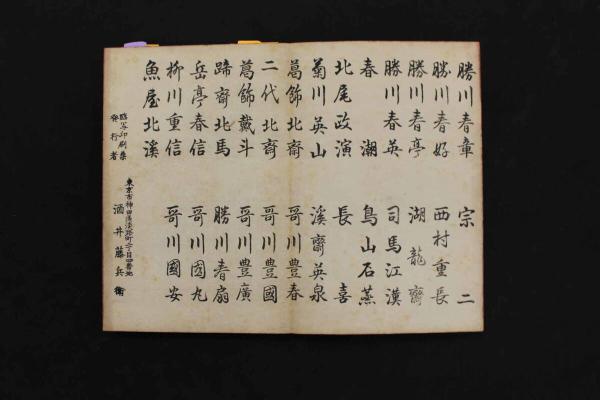 勝川春章 宗二
勝川春好 西村重長
勝川春亭 湖龍齋
勝川春英 司馬江漢
春潮 鳥山石燕
北尾政演 長喜
菊川英山 溪齋英泉
葛飾北齋 哥川豊春
二代北齋 哥川豊國
葛飾戴斗 哥川豊廣
蹄齋北馬 勝川春扇
岳亭春信 哥川國丸
柳川重信 哥川國安
魚屋北溪
東京市神田區淡路町二丁目四番地
臨写印刷兼
発行者 酒井藤兵衛